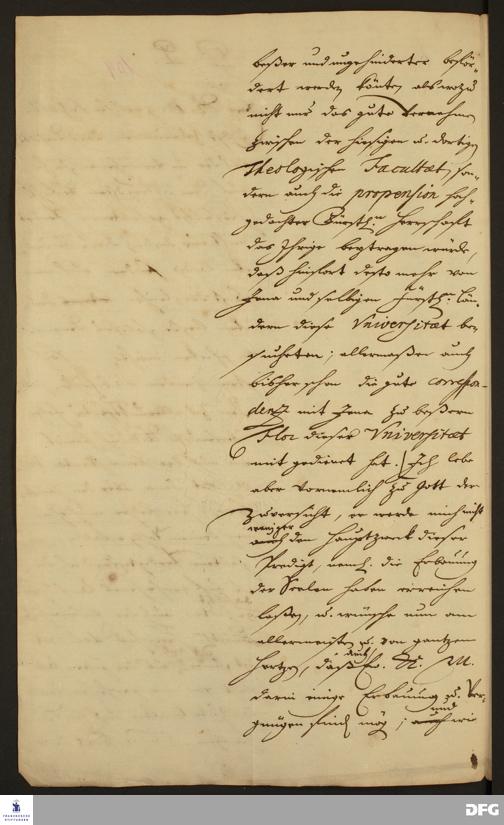 beßer und ungehinderter beför-
dert werden könten als wozu
nicht nur das gute Vernehmen
zwischen der hiesigen u. dortigen
Theologischen Facultæt, son-
dern auch die propension hoch-
gedachter Fürstl.n Herrschafft
das Ihrige beytragen würde,
daß hinfort desto mehr von
Jena und selbigen Fürstl.n Län-
dern diese Universitæt be-
sucheten; allermaßen auch
bisher schon die gute correspon-
denz mit Jena zu beßern
Flor dieser Universitæt
mit gedienet hat. Ich lebe
aber vornemlich zu Gott der
Zuversicht, er werde mich nicht
weniger
auch den Hauptzweck dieser
Predigt, neml. die Erbauung
der Seelen haben erreichen
laßen, u. wünsche nun am
allermeisten u. von gantzem
auch
Hertzen, daß Ew. K. M.
darin einige Erbauung u. Ver-
und
gnügen finden mög; auch wie
FRANCKESCHE
STIFTUNGEN
DFG